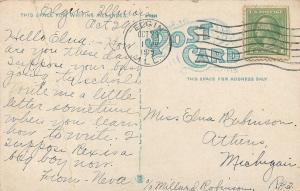 Elgin, Illinois
Oct 29
THIS SPACE FOR WRITING MESSAGES
POST CARD
THIS SPACE FOR ADDRESS ONLY
ELGIN
OCT
Hello Elna - How
are you these days
Suppose your
going to school.
Write me a little
letter sometime
when you learn
how to write. I
suppose Rex is a
big boy now.
From - Neva
Miss Elna Robinson,
Athens,
Michigan
℅ Millard Robinson, R#3